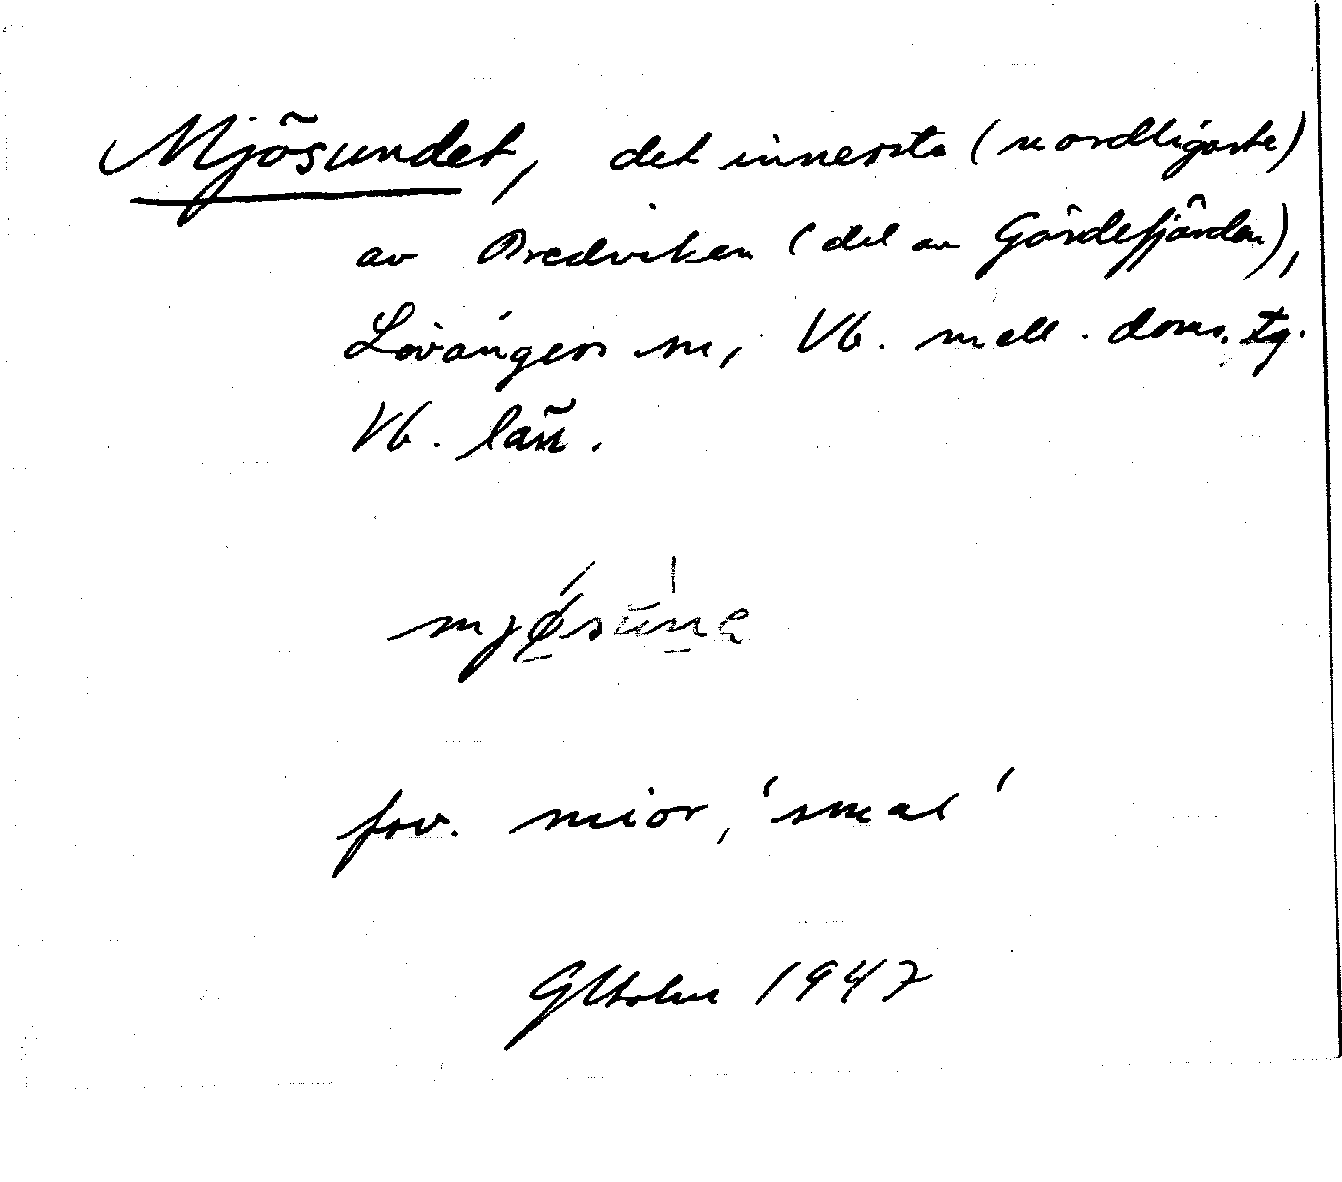 Mjösundet, det innersta (nordligaste)
av Bredviken (del av Gärdefjärden),
Lövångers sn, Vb. mell. doms. tg.
Vb. län.
fsv. mior, 'smal'
GHolm 1947